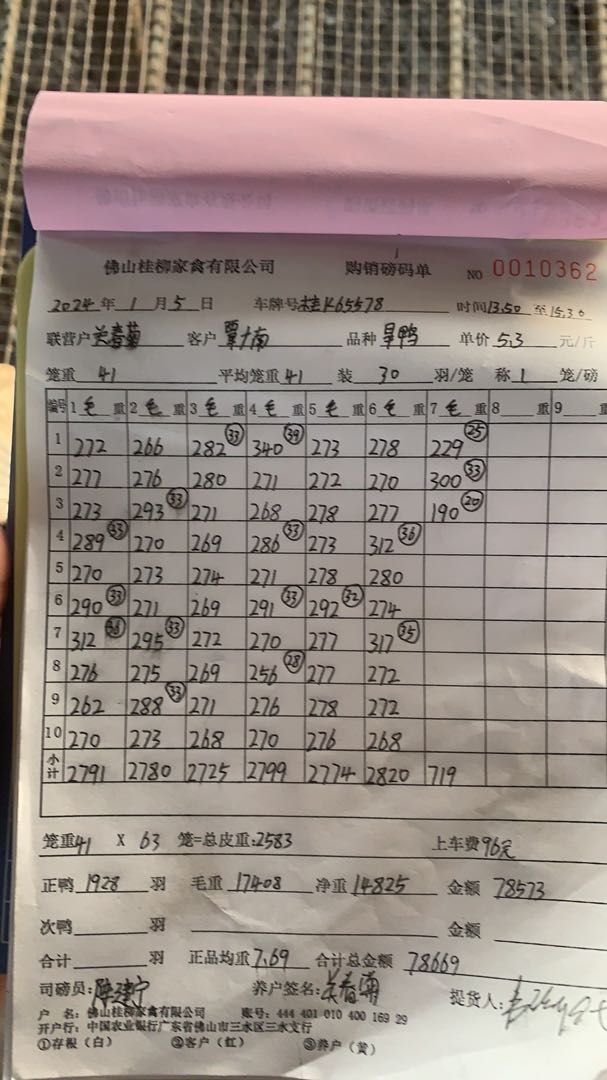 佛山桂柳家禽有限公司 购销磅码单 NO 0010362
2024年 1月5日 车牌号 桂K65578 时间13.50至15.30
联营户 关春菊 客户 覃大南 品种 旱鸭 单价 5.3 元/斤
笼重 41 平均笼重 41 装 30 羽/笼 称 1 笼/磅
编号 1 毛 重 2 毛 重 3 毛 重 4 毛 重 5 毛 重 6 毛 重 7 毛 重 8 重 9
1 272 266 282 33 340 39 273 278 229 25
2 277 276 280 271 272 270 300 33
3 273 293 33 271 268 278 277 190 20
4 289 33 270 269 286 33 273 312 36
5 270 273 274 271 278 280
6 290 33 271 269 291 33 292 32 274
7 312 295 33 272 270 277 317 35
8 276 275 269 256 28 277 272
9 262 288 33 271 276 278 272
10 270 273 268 270 276 268
小计 2791 2780 2725 2799 2774 2820 719
笼重41 X 63 笼=总皮重:2583 上车费96元
正鸭 1928 羽 毛重 17408 净重 14825 金额 78573
次鸭 羽 金额
合计 羽 正品均重 7.69 合计总金额 78669
司磅员: 陈建宁 养户签名: 提货人:
户 名: 佛山桂柳家禽有限公司 账号: 444 401 010 400 169 29
开户行: 中国农业银行广东省佛山市三水区三水支行
①存根(白) ②客户(红) ③养户(黄)